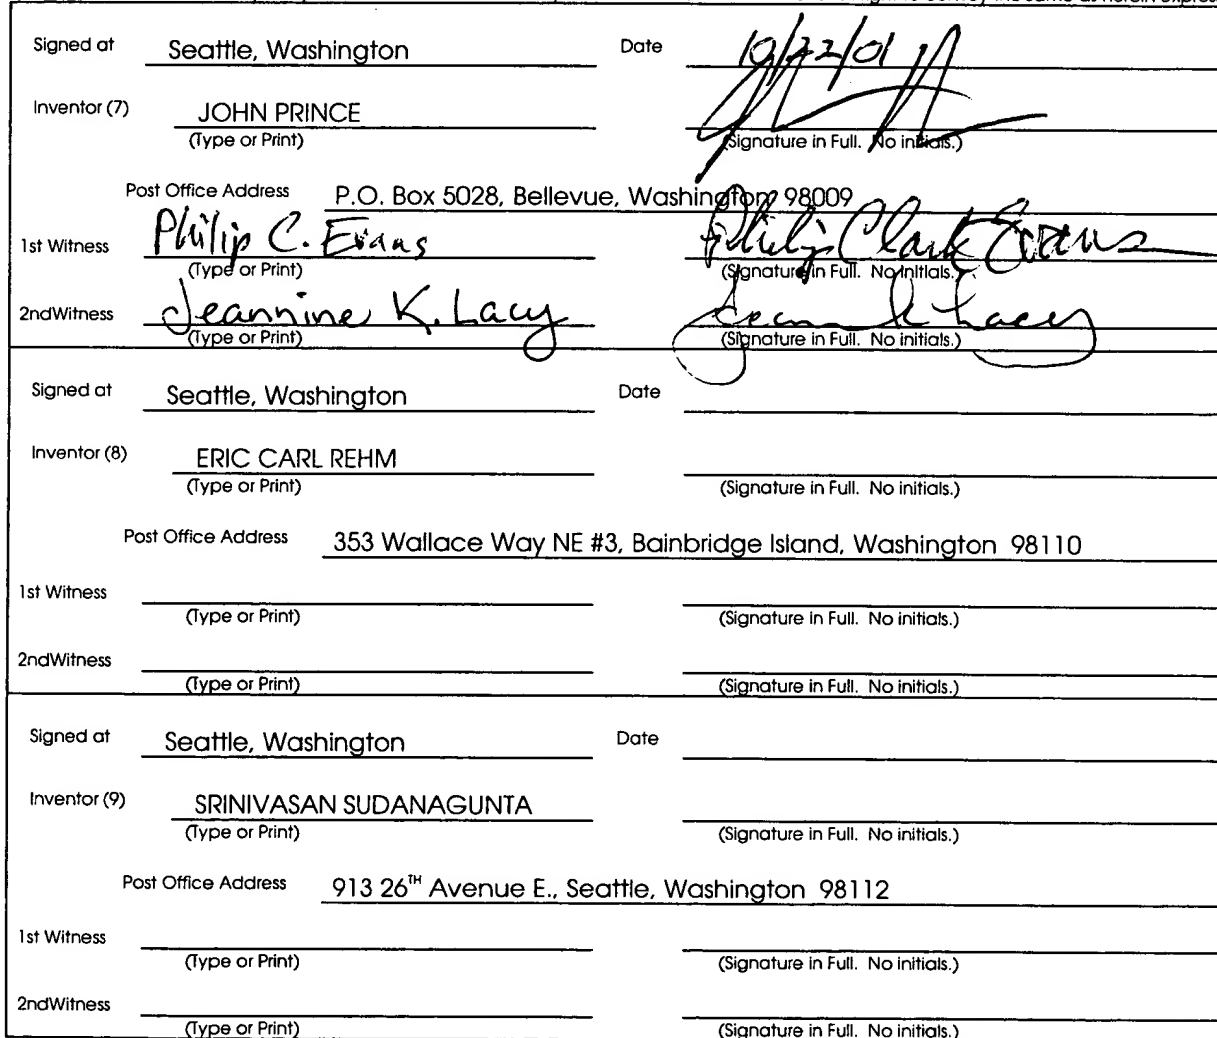 the same as herein express
Signed at Seattle, Washington Date 10/22/01
Inventor (7) JOHN PRINCE
(Type or Print) (Signature in Full. No initials.)
Post Office Address P.O. Box 5028, Bellevue, Washington 98009
1st Witness Philip C. Evans Philip Clark Evans
(Type or Print) (Signature in Full. No Initials.)
2ndWitness Jeannine K. Lacy Jeannine K Lacy
(Type or Print) (Signature in Full. No initials.)
Signed at Seattle, Washington Date
Inventor (8) ERIC CARL REHM
(Type or Print) (Signature in Full. No initials.)
Post Office Address 353 Wallace Way NE #3, Bainbridge Island, Washington 98110
1st Witness
(Type or Print) (Signature in Full. No initials.)
2ndWitness
(Type or Print) (Signature in Full. No initials.)
Signed at Seattle, Washington Date
Inventor (9) SRINIVASAN SUDANAGUNTA
(Type or Print) (Signature in Full. No initials.)
Post Office Address 913 26TH Avenue E., Seattle, Washington 98112
1st Witness
(Type or Print) (Signature in Full. No initials.)
2ndWitness
(Type or Print) (Signature in Full. No initials.)